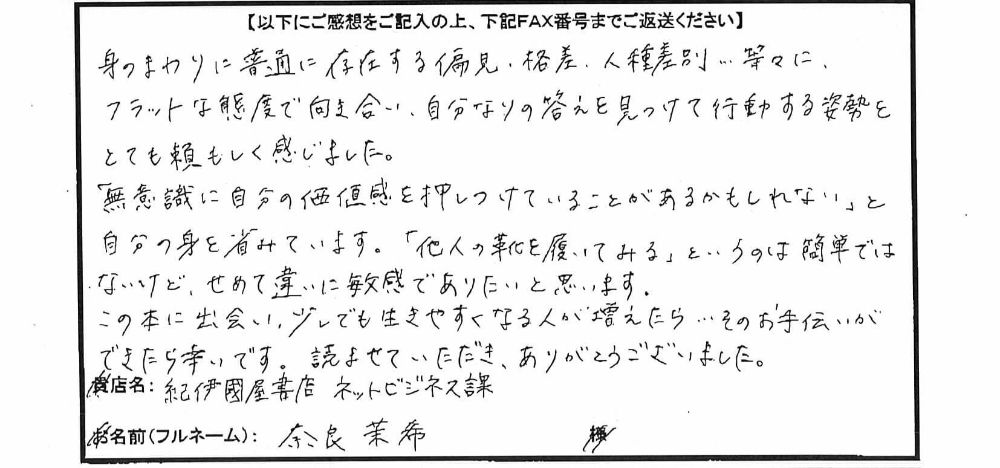 【以下にご感想をご記入の上、下記FAX番号までご返送ください】
身のまわりに普通に存在する偏見・格差・人種差別…等々に、
フラットな態度で向き合い、自分なりの答えを見つけて行動する姿勢を
とても頼もしく感じました。
「無意識に自分の価値感を押しつけていることがあるかもしれない」と
自分の身を省みています。「他人の靴を履いてみる」というのは簡単では
ないけど、せめて違いに敏感でありたいと思います。
この本に出会い、少しでも生きやすくなる人が増えたら…そのお手伝いが
できたら幸いです。読ませていただき、ありがとうございました。
貴店名: 紀伊國屋書店 ネットビジネス課
お名前(フルネーム): 奈良 茉希 様